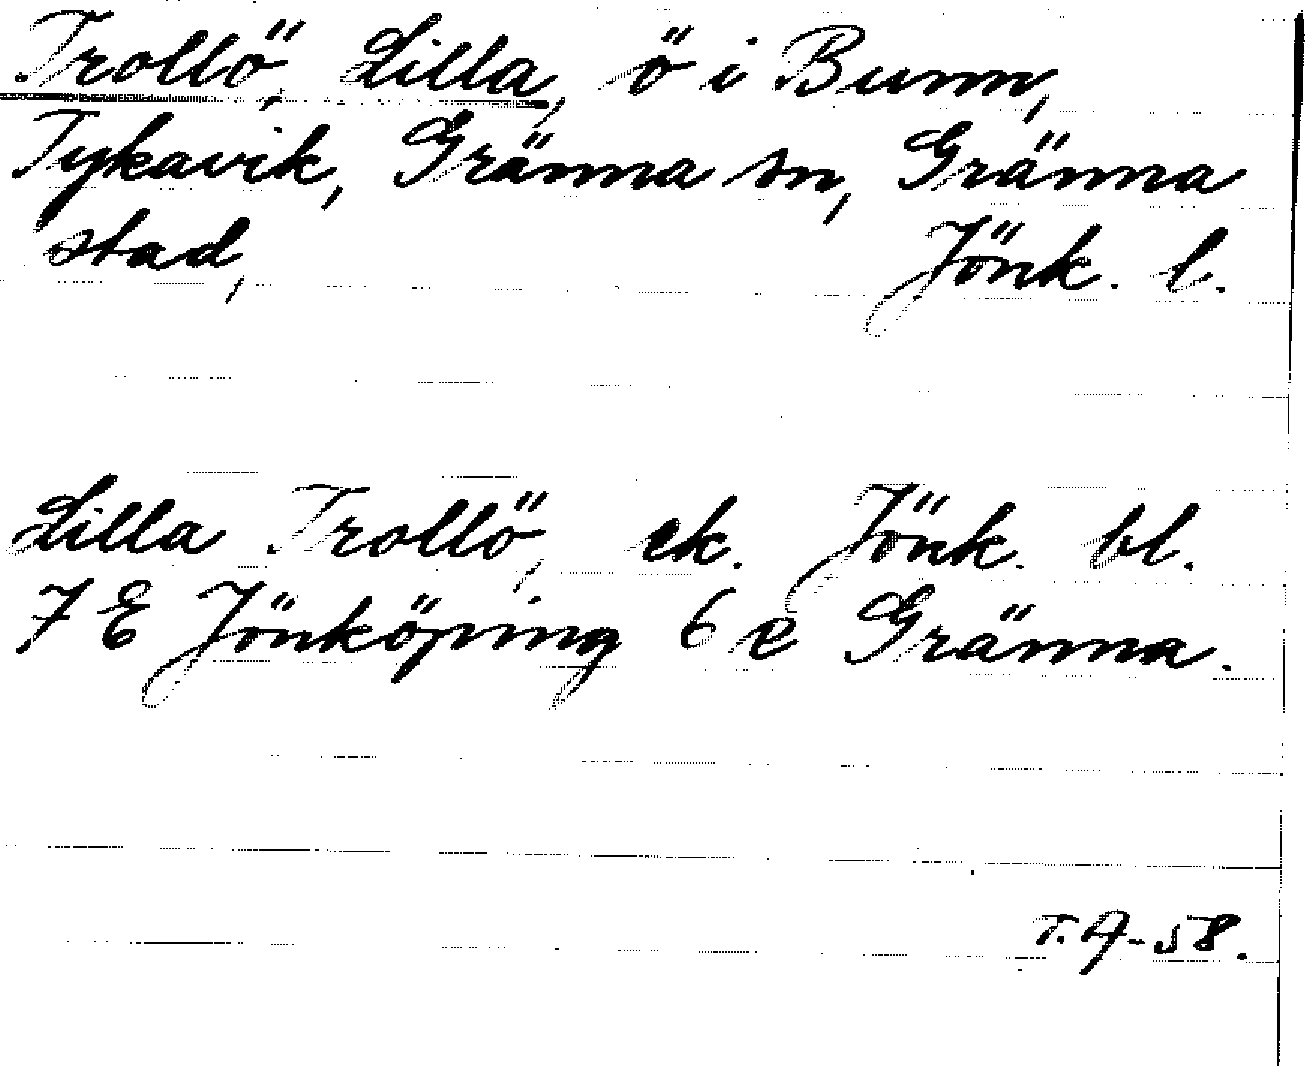 Trollö, Lilla, ö i Bunn,
Tykavik, Gränna sn, Gränna
stad, Jönk. l.
Lilla Trollö, ek. Jönk. bl.
7 E Jönköping 6 e Gränna.
T.A-58.